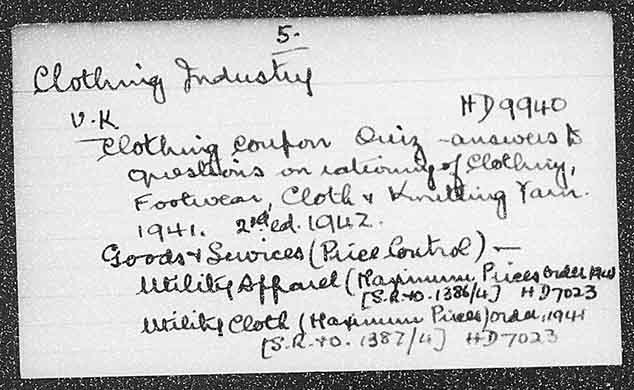 5.
Clothing Industry
U.K HD9940
Clothing Coupon Quiz - answers to
questions on rationing of Clothing,
Footwear, Cloth & Knitting Yarn.
1941. 2nd ed. 1942.
Goods & Services (Price Control) —
Utility Apparel (Maximum Prices Order 1941
[S.R.&O. 1386/41] HD7023
Utility Cloth (Maximum Prices) Order, 1941
[S.R.&O. 1387/41] HD7023